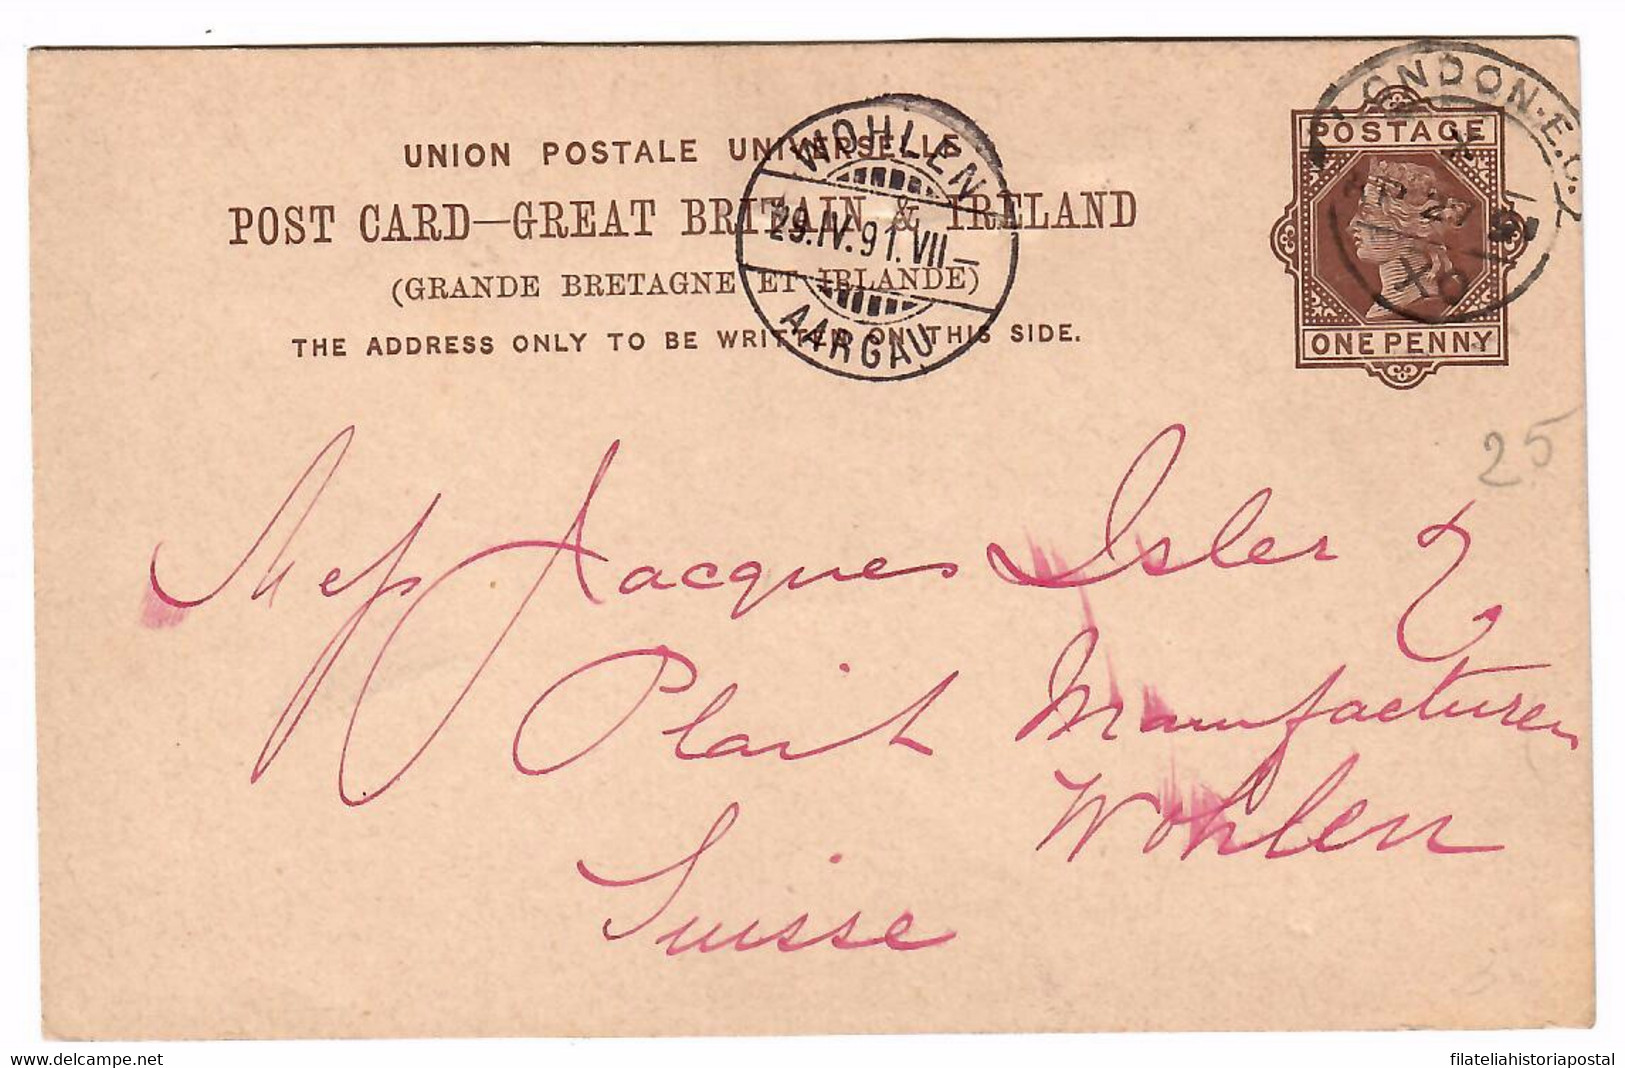 UNION POSTALE UNIVERSELLE
POST CARD—GREAT BRITAIN & IRELAND
(GRANDE BRETAGNE ET IRLANDE)
THE ADDRESS ONLY TO BE WRITTEN ON THIS SIDE.
WOHLEN
29.IV.91.VII—
AARGAU
LONDON.E.C.
X
AP 27 91
XO
POSTAGE
ONE PENNY
25
Mess Jacques Isler &
Plait Manufacturers
Wohlen
Suisse
www.delcampe.net
filateliahistoriapostal